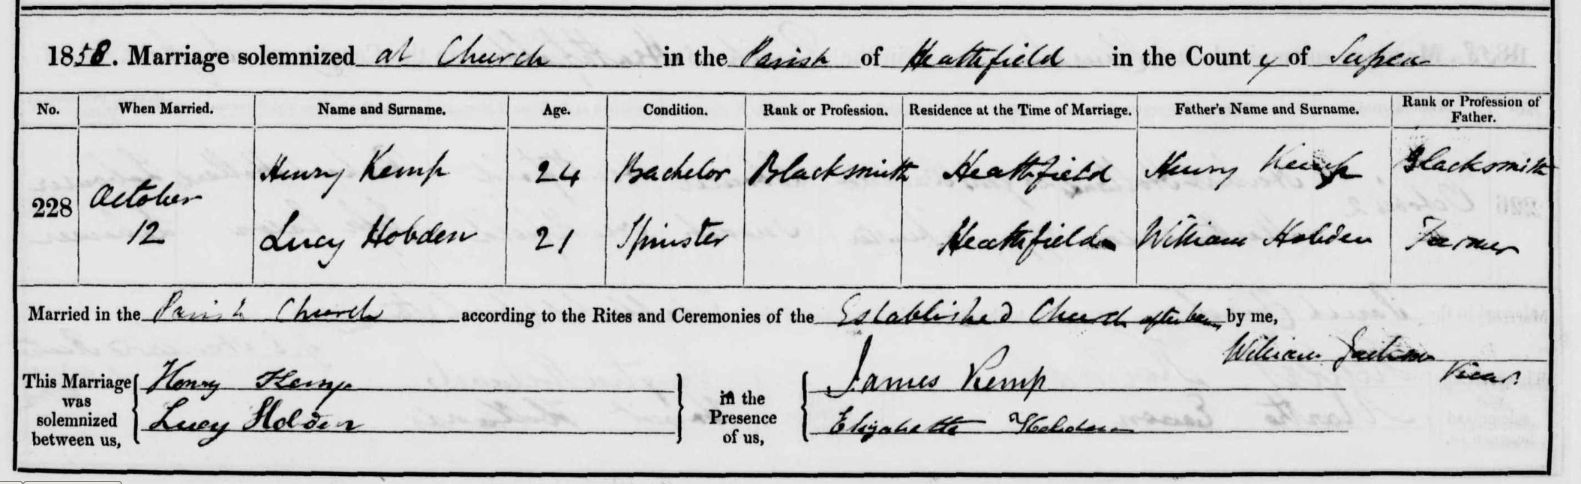 1858. Marriage solemnized at Church in the Parish of Heathfield in the County of Sussex
No. When Married. Name and Surname. Age. Condition. Rank or Profession. Residence at the Time of Marriage. Father's Name and Surname. Rank or Profession of Father.
228 October 12
Henry Kemp 24 Bachelor Blacksmith Heathfield Henry Kemp Blacksmith
Lucy Hobden 21 Spinster Heathfield William Hobden Farmer
Married in the Parish Church according to the Rites and Ceremonies of the Established Church after banns by me,
William Vicar
This Marriage was solemnized between us, Henry Kemp in the Presence of us, James Kemp
Lucy Hobden Elizabeth Hobden